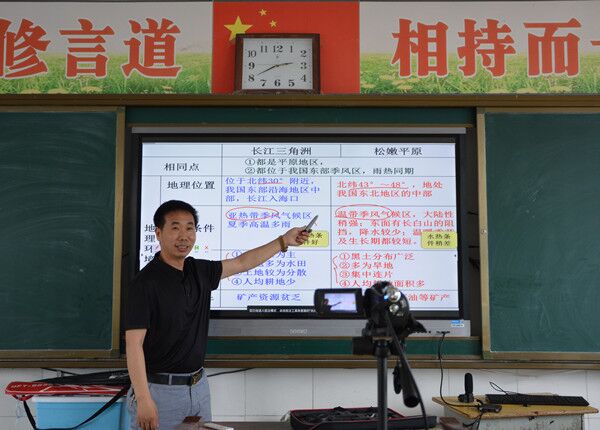 修言道
相持而
长江三角洲
松嫩平原
相同点
①都是平原地区,
②都位于我国东部季风区,雨热同期
地理位置
位于北纬30°附近,
我国东部沿海地区中
部,长江入海口
北纬43°~48°,地处
我国东北地区的中部
亚热带季风气候区
夏季高温多雨
温带季风气候区,大陆性
稍强;东面有长白山的阻
挡。降水较少;
及生长期都较短。
水热条
件稍差
条件
为主
多为水田
③土地较为分散
④人均耕地少
①黑土分布广泛
②多为旱地
③集中连片
④人均
面积多
矿产资源贫乏
油等矿产